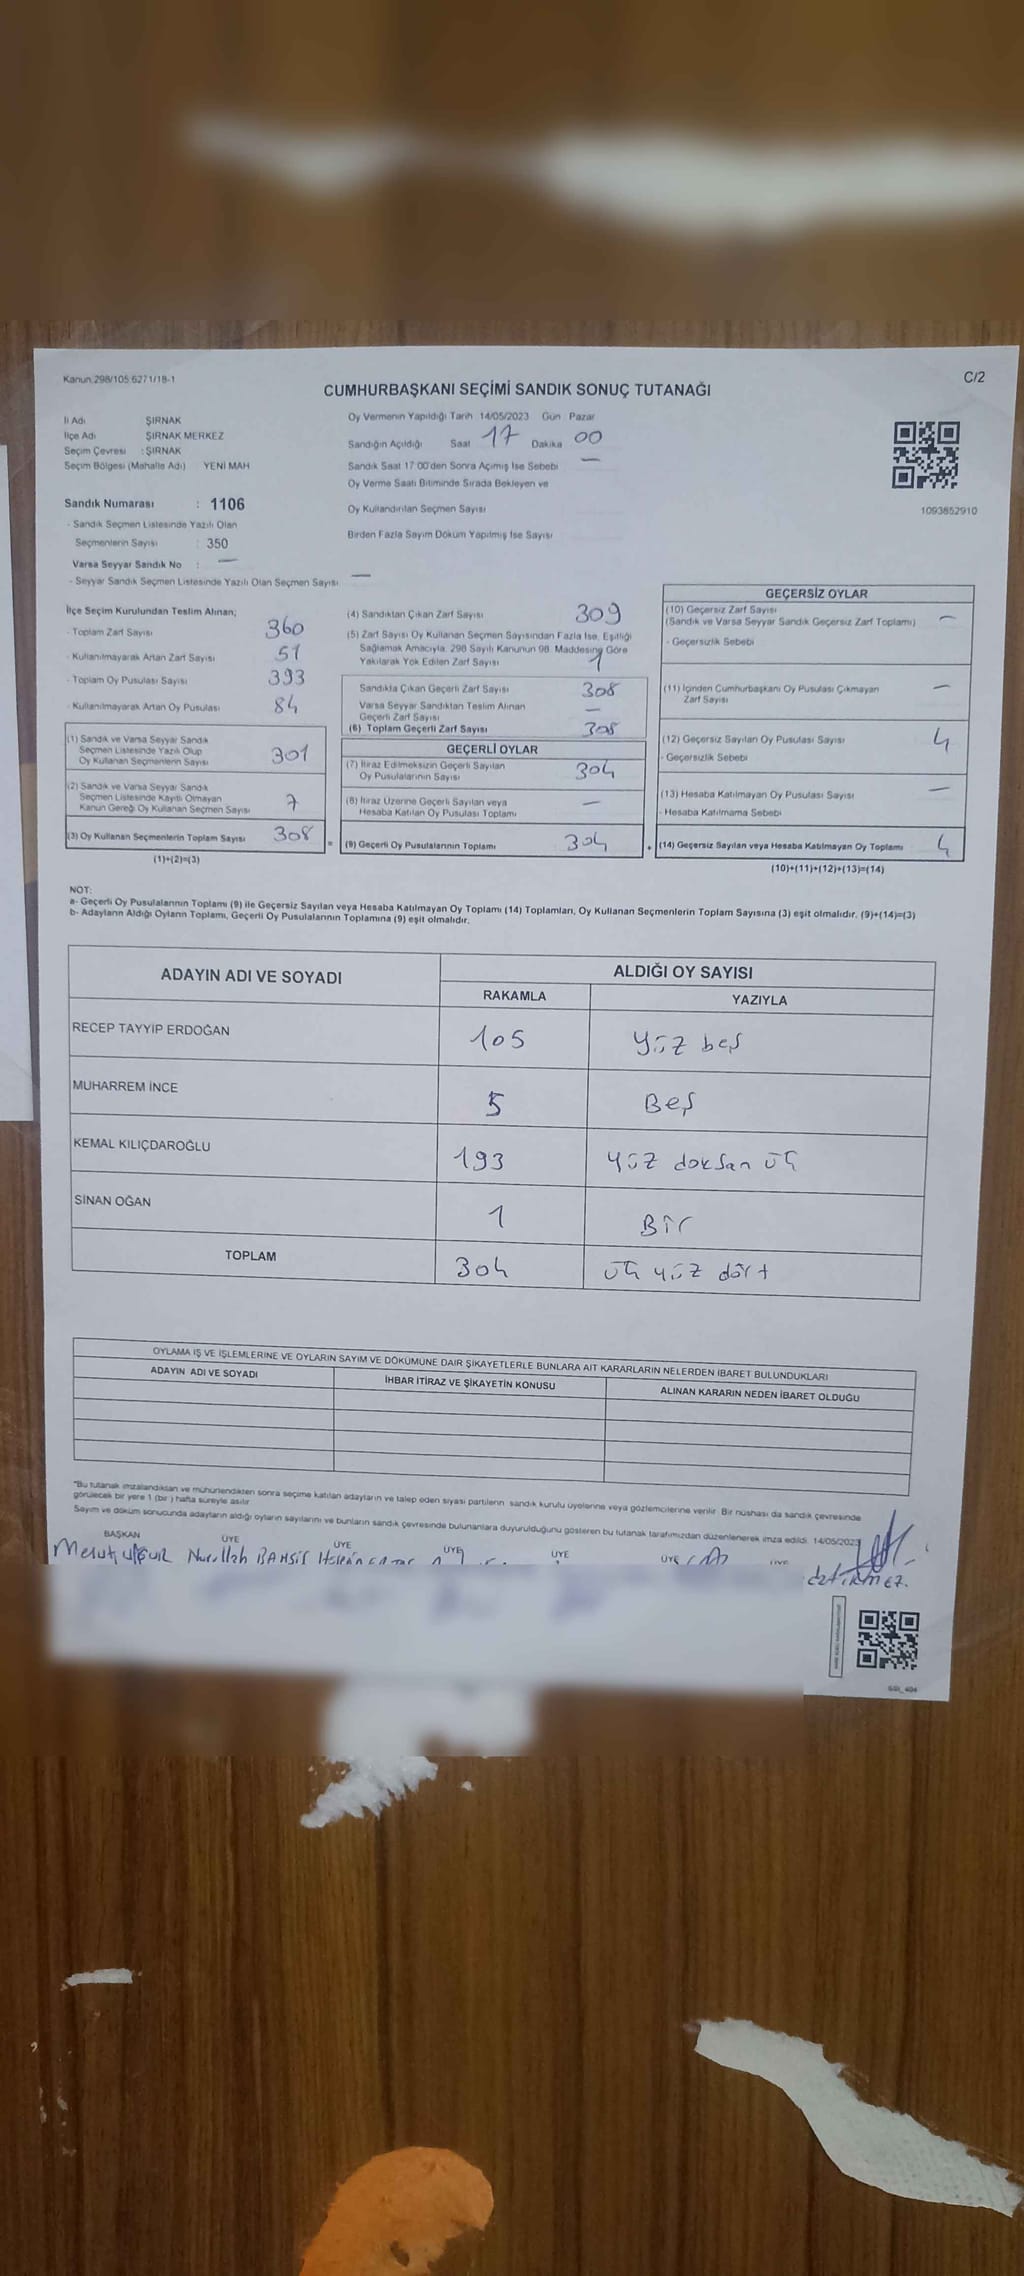 Kanun:298/105 6271/18-1
C/2
CUMHURBAŞKANI SEÇİMİ SANDIK SONUÇ TUTANAĞI
İl Adı ŞIRNAK
İlçe Adı ŞIRNAK MERKEZ
Seçim Çevresi : ŞIRNAK
Seçim Bölgesi (Mahalle Adı) YENİ MAH
Oy Vermenin Yapıldığı Tarih 14/05/2023 Gün Pazar
Sandığın Açıldığı Saat 17 Dakika 00
Sandık Saat 17 00'den Sonra Açımış İse Sebebi —
Oy Verme Saati Bitiminde Sırada Bekleyen ve
Oy Kullandırılan Seçmen Sayısı
Birden Fazla Sayım Döküm Yapılmış İse Sayısı
1093852910
Sandık Numarası : 1106
- Sandık Seçmen Listesinde Yazılı Olan
Seçmenlerin Sayısı : 350
Varsa Seyyar Sandık No : —
- Seyyar Sandık Seçmen Listesinde Yazılı Olan Seçmen Sayısı —
İlçe Seçim Kurulundan Teslim Alınan;
- Toplam Zarf Sayısı 360
- Kullanılmayarak Artan Zarf Sayısı 51
- Toplam Oy Pusulası Sayısı 393
- Kullanılmayarak Artan Oy Pusulası 84
(1) Sandık ve Varsa Seyyar Sandık
Seçmen Listesinde Yazılı Olup
Oy Kullanan Seçmenlerin Sayısı 301
(2) Sandık ve Varsa Seyyar Sandık
Seçmen Listesinde Kayıtlı Olmayan
Kanun Gereği Oy Kullanan Seçmen Sayısı 7
(3) Oy Kullanan Seçmenlerin Toplam Sayısı 308
(1)+(2)=(3)
(4) Sandıktan Çıkan Zarf Sayısı 309
(5) Zarf Sayısı Oy Kullanan Seçmen Sayısından Fazla İse, Eşitliği
Sağlamak Amacıyla, 298 Sayılı Kanunun 98. Maddesine Göre
Yakılarak Yok Edilen Zarf Sayısı 1
Sandıkta Çıkan Geçerli Zarf Sayısı 308
Varsa Seyyar Sandıktan Teslim Alınan
Geçerli Zarf Sayısı —
(6) Toplam Geçerli Zarf Sayısı 308
GEÇERLİ OYLAR
(7) İtiraz Edilmeksizin Geçerli Sayılan
Oy Pusulalarının Sayısı 304
(8) İtiraz Üzerine Geçerli Sayılan veya
Hesaba Katılan Oy Pusulası Toplamı —
= (9) Geçerli Oy Pusulalarının Toplamı 304
GEÇERSİZ OYLAR
(10) Geçersiz Zarf Sayısı —
(Sandık ve Varsa Seyyar Sandık Geçersiz Zarf Toplamı)
- Geçersizlik Sebebi
(11) İçinden Cumhurbaşkanı Oy Pusulası Çıkmayan —
Zarf Sayısı
(12) Geçersiz Sayılan Oy Pusulası Sayısı 4
- Geçersizlik Sebebi
(13) Hesaba Katılmayan Oy Pusulası Sayısı —
- Hesaba Katılmama Sebebi
+ (14) Geçersiz Sayılan veya Hesaba Katılmayan Oy Toplamı 4
(10)+(11)+(12)+(13)=(14)
NOT:
a- Geçerli Oy Pusulalarının Toplamı (9) ile Geçersiz Sayılan veya Hesaba Katılmayan Oy Toplamı (14) Toplamları, Oy Kullanan Seçmenlerin Toplam Sayısına (3) eşit olmalıdır. (9)+(14)=(3)
b- Adayların Aldığı Oyların Toplamı, Geçerli Oy Pusulalarının Toplamına (9) eşit olmalıdır.
ADAYIN ADI VE SOYADI ALDIĞI OY SAYISI
RAKAMLA YAZIYLA
RECEP TAYYİP ERDOĞAN 105 Yüz beş
MUHARREM İNCE 5 Beş
KEMAL KILIÇDAROĞLU 193 yüz doksan üç
SİNAN OĞAN 1 Bir
TOPLAM 304 üç yüz dört
OYLAMA İŞ VE İŞLEMLERİNE VE OYLARIN SAYIM VE DÖKÜMÜNE DAİR ŞİKAYETLERLE BUNLARA AİT KARARLARIN NELERDEN İBARET BULUNDUKLARI
ADAYIN ADI VE SOYADI İHBAR İTİRAZ VE ŞİKAYETİN KONUSU ALINAN KARARIN NEDEN İBARET OLDUĞU
"Bu tutanak imzalandıktan ve mühürlendikten sonra seçime katılan adayların ve talep eden siyasi partilerin sandık kurulu üyelerine veya gözlemcilerine verilir. Bir nüshası da sandık çevresinde
görülecek bir yere 1 (bir ) hafta süreyle asılır.
Sayım ve döküm sonucunda adayların aldığı oyların sayılarını ve bunların sandık çevresinde bulunanlara duyurulduğunu gösteren bu tutanak tarafımızdan düzenlenerek imza edildi. 14/05/2023
BAŞKAN ÜYE ÜYE ÜYE ÜYE ÜYE
Nurullah